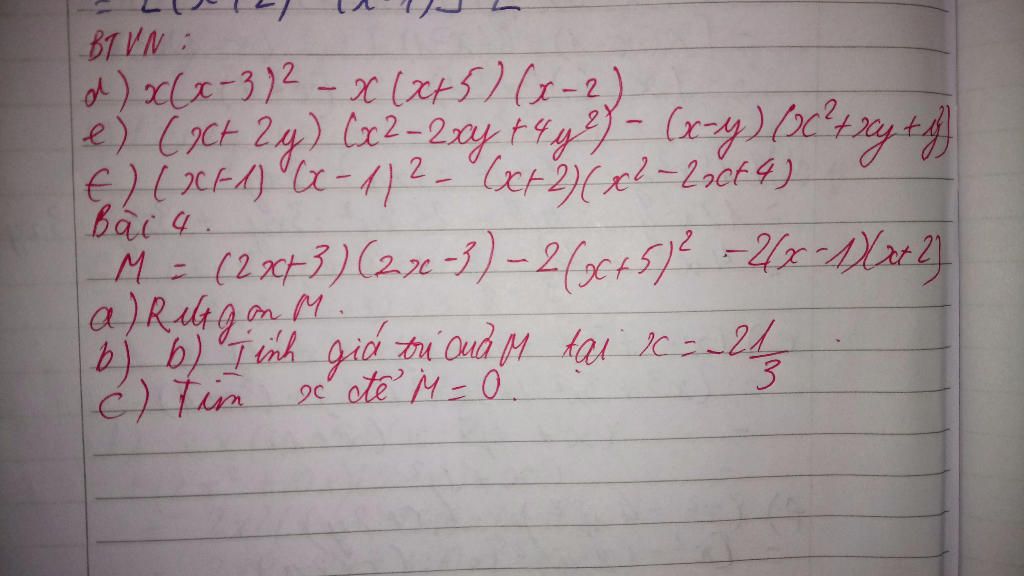 BTVN :
d) x(x-3)² - x(x+5)(x-2)
e) (x+2y)(x2-2xy+4y²) - (x-y)(x²+xy+y²)
f) (x+1)(x-1)² - (x+2)(x²-2x+4)
Bài 4.
M = (2x+3)(2x-3) - 2(x+5)² - 2(x-1)(x+2)
a) Rút gọn M.
b) b) Tính giá trị của M tại x = -2 1/3.
c) Tìm x để M = 0.